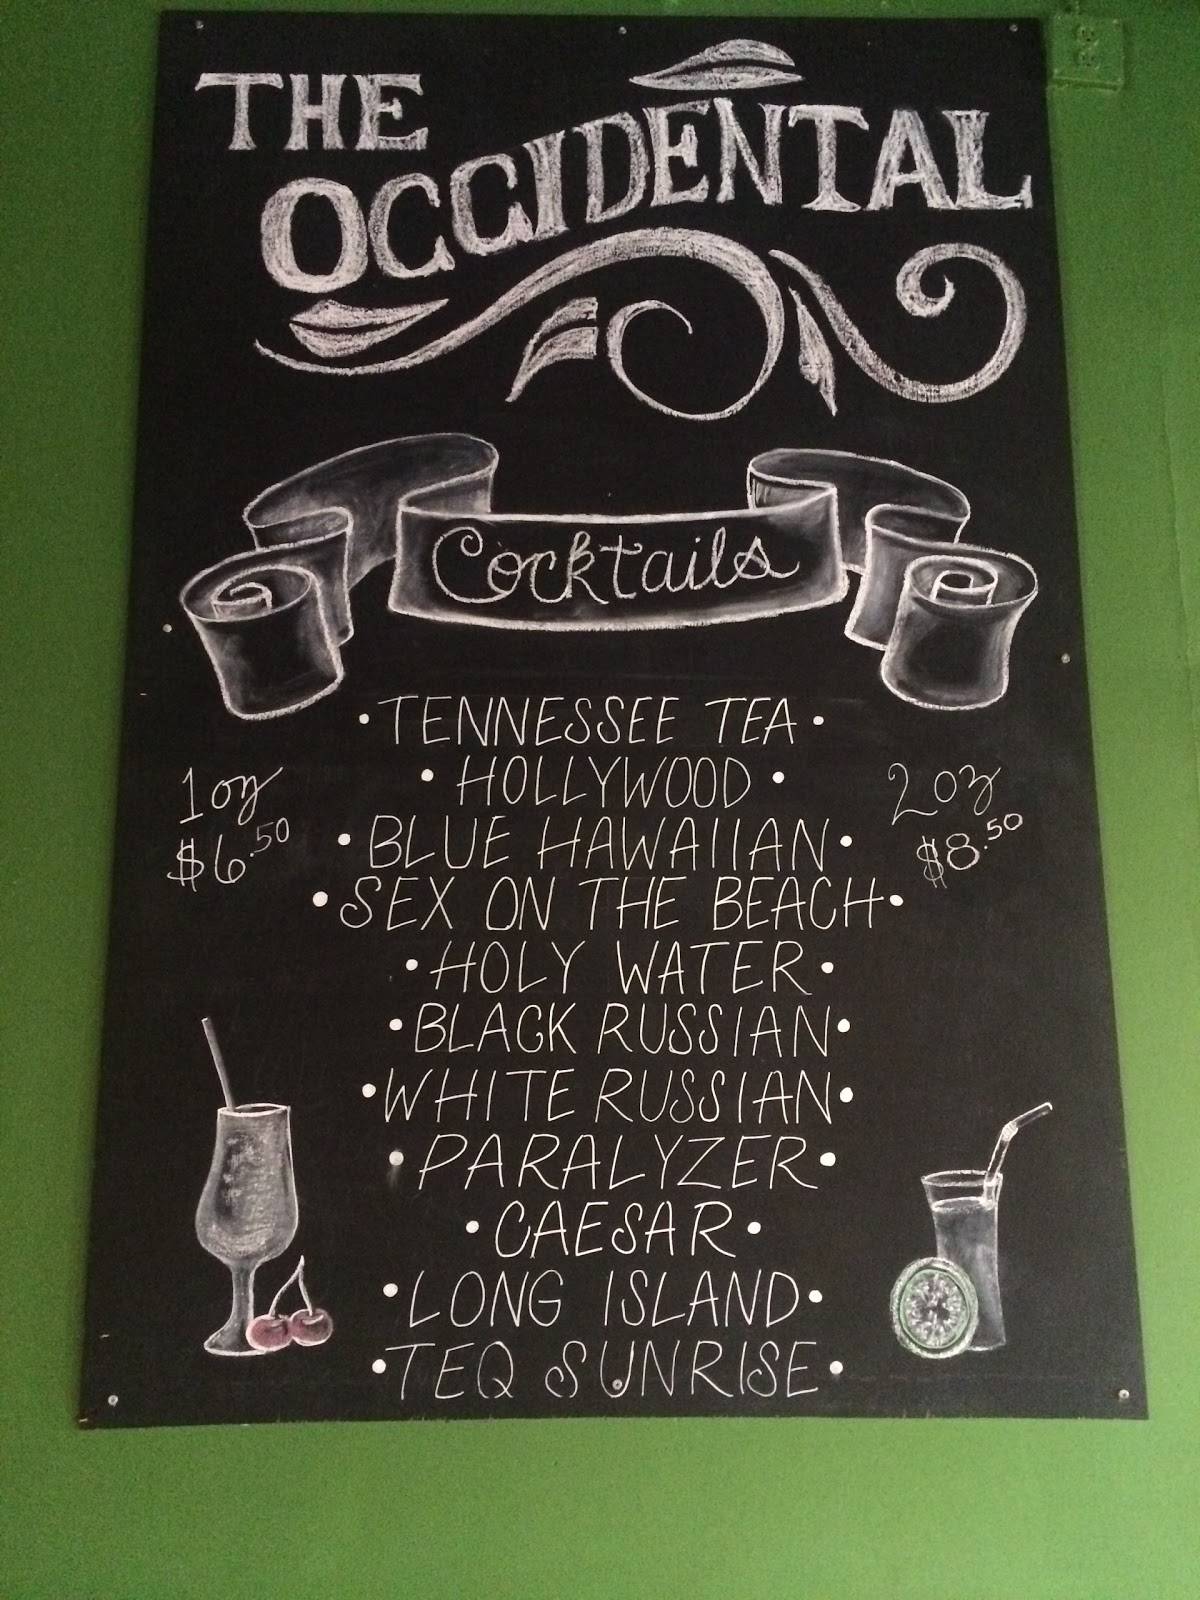 THE
OCCIDENTAL
Cocktails
•TENNESSEE TEA•
•HOLLYWOOD•
1oz
$6.50
2oz
$8.50
•BLUE HAWAIIAN•
•SEX ON THE BEACH•
•HOLY WATER•
•BLACK RUSSIAN•
•WHITE RUSSIAN•
•PARALYZER•
•CAESAR•
•LONG ISLAND•
•TEQ SUNRISE•